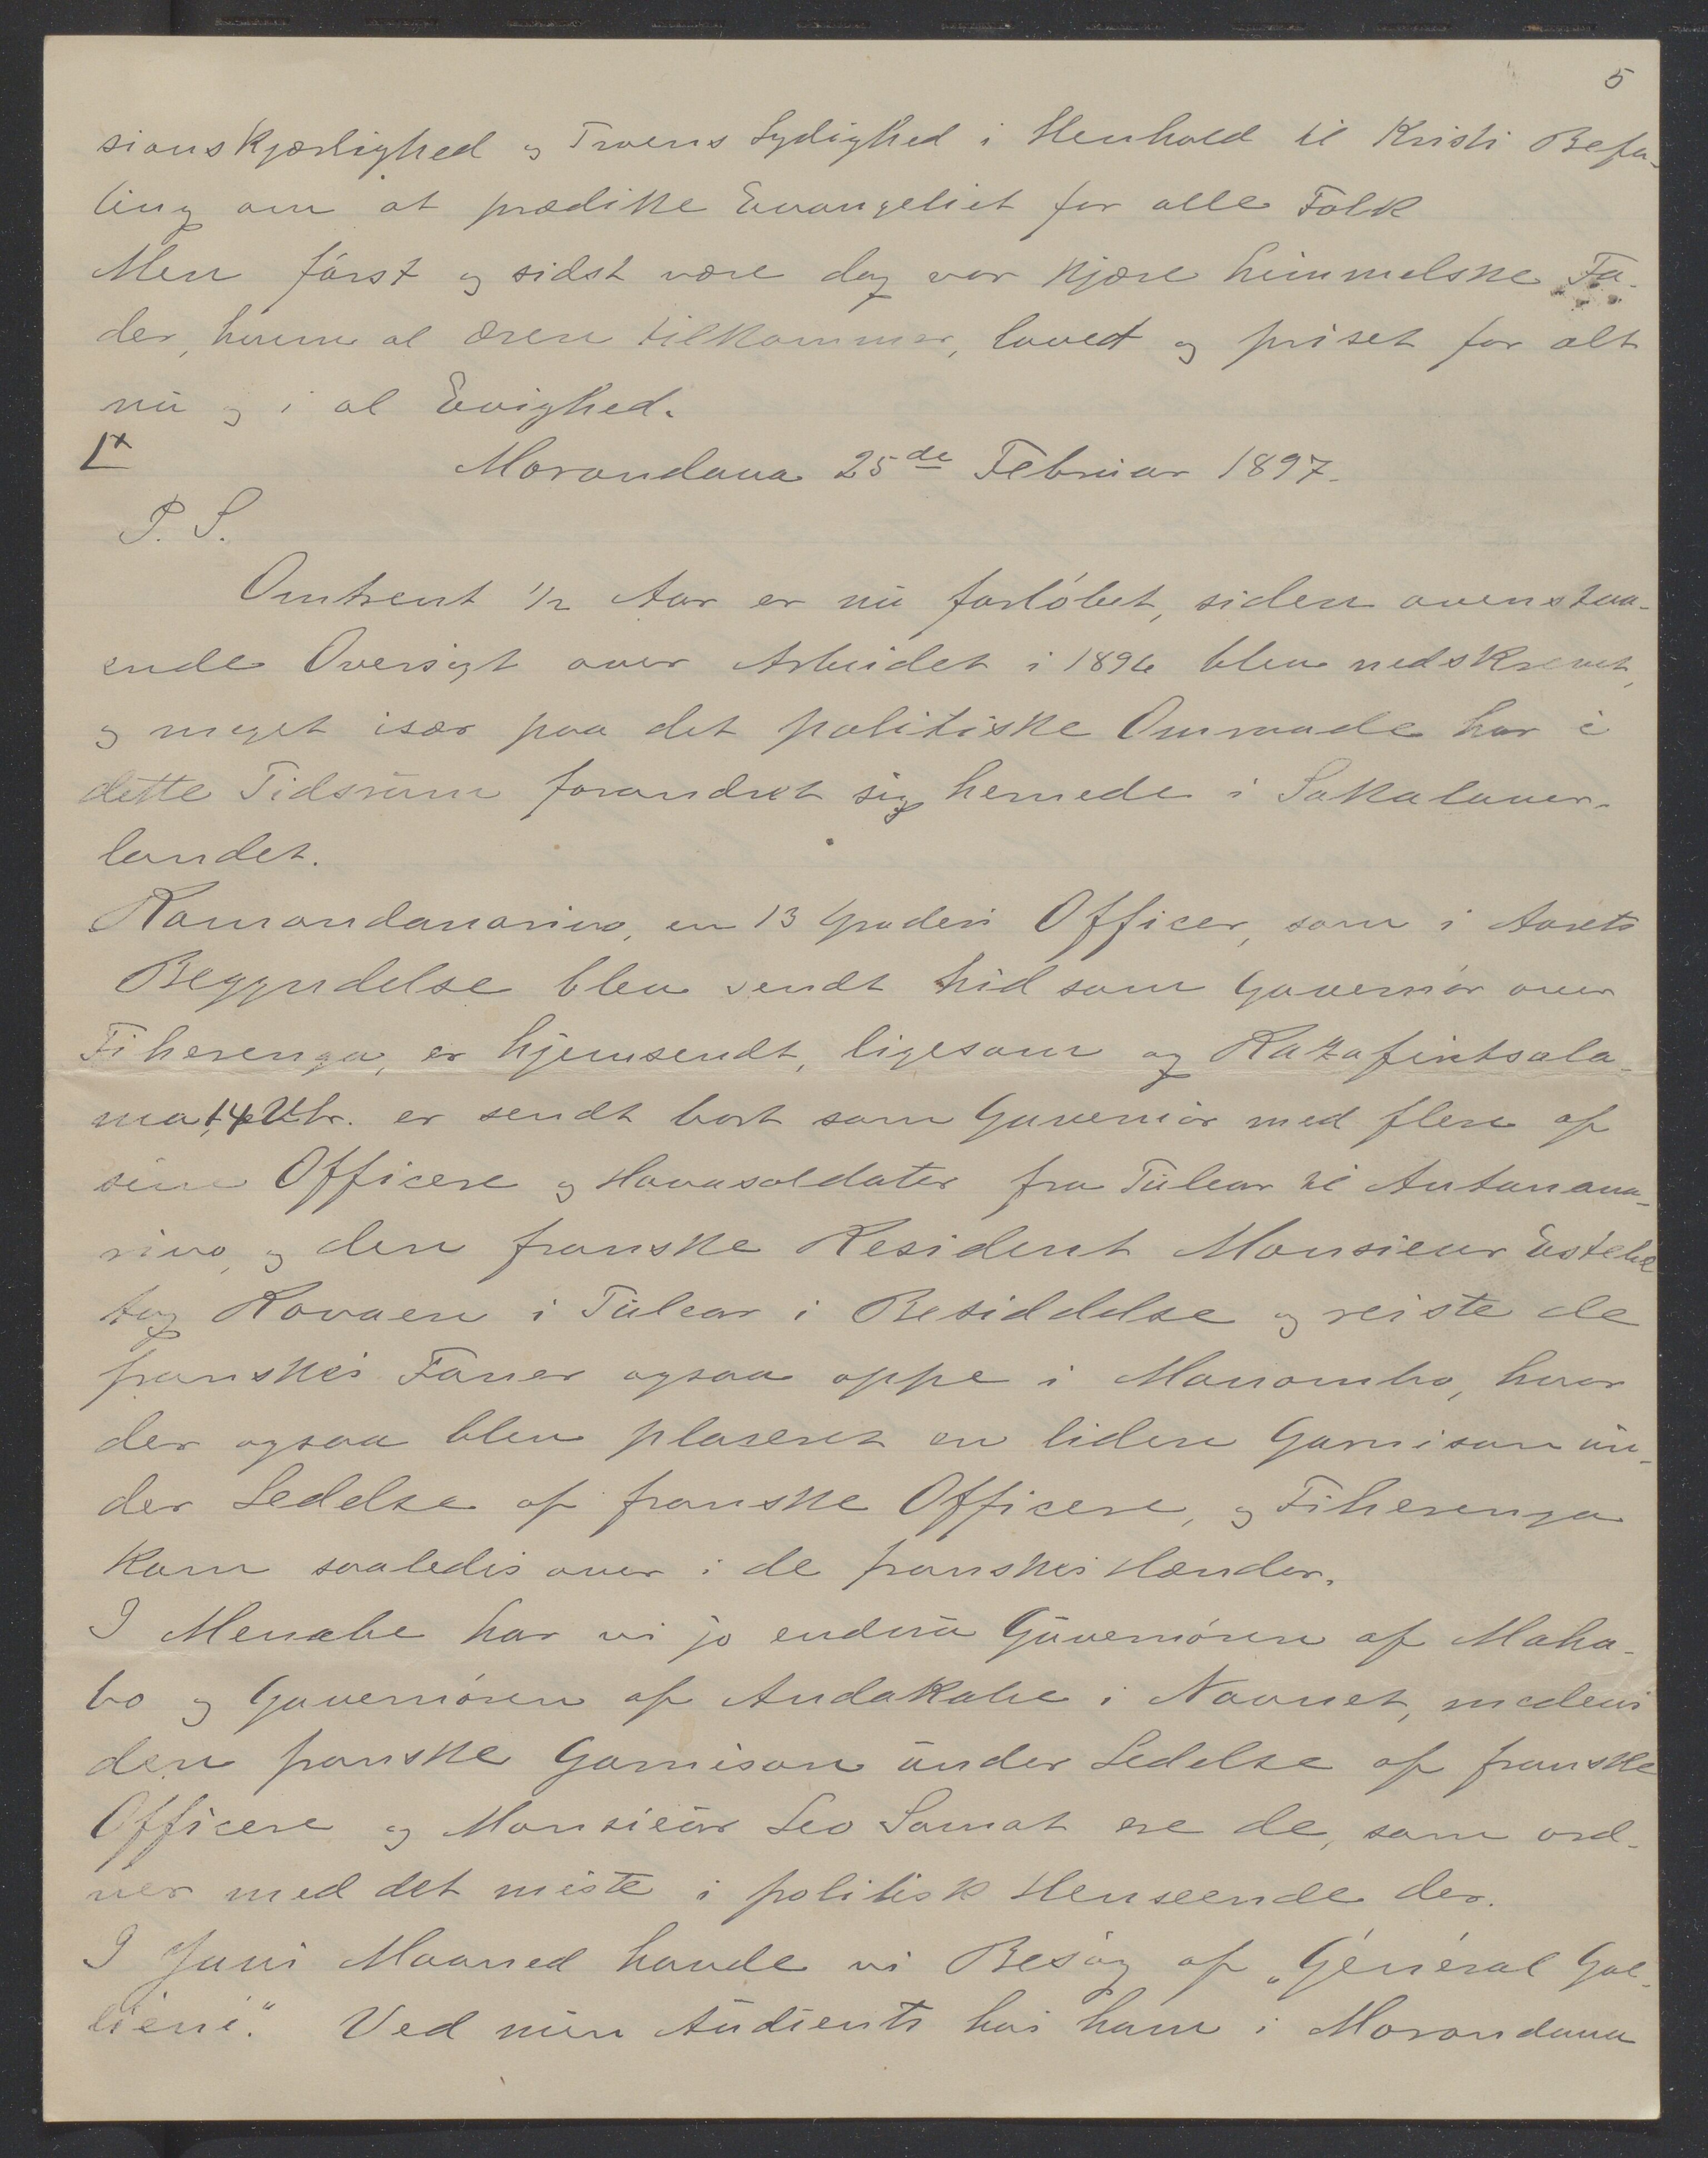 5
sionskjærlighed og Troens Lydighed i Henhold til Kristi Befa-
ling om at prædike Evangeliet for alle Folk
Men først og sidst være dog vor kjære himmelske Fa-
der, hvem al Æren tilkommer, lovet og priset for alt
nu og i al Evighed.
Morondava 25de Februar 1897.
P. S.
Omtrent 1/2 Aar er nu forløbet, siden ovenstaa-
ende Oversigt over Arbeidet i 1896 blev nedskrevet,
og meget især paa det politiske Omraade har i
dette Tidsrum forandret sig hernede i Sakalaver-
landet.
Ramandanarivo, en 13 Graders Officer, som i Aarets
Begyndelse blev sendt hid som Guvernør over
Fiherenga, er hjemsendt, ligesom og Razafintsala-
ma, 14 Vtr. er sendt bort som Guvernør med flere af
sine Officere og Hovasoldater fra Tulear til Antanana-
rivo, og den franske Resident Monsieur Estebe
tog Rovaen i Tulear i Besiddelse og reiste de
franskes Faner ogsaa oppe i Manombo, hvor
der ogsaa blev plaseret en liden Garnison un-
der Ledelse af franske Officere, og Fiherenga
kom saaledes over i de franskes Hænder.
I Menabe har vi jo endnu Guvernøren af Maha-
bo og Guvernøren af Andakabe i Navnet, medens
den franske Garnison under Ledelse af franske
Officere og Monsieur Leo Samat ere de, som ord-
ner med det meste i politisk Henseende der.
I Juni Maaned havde vi Besøg af „Général Gal-
liéni." Ved min Audients hos ham i Morondava